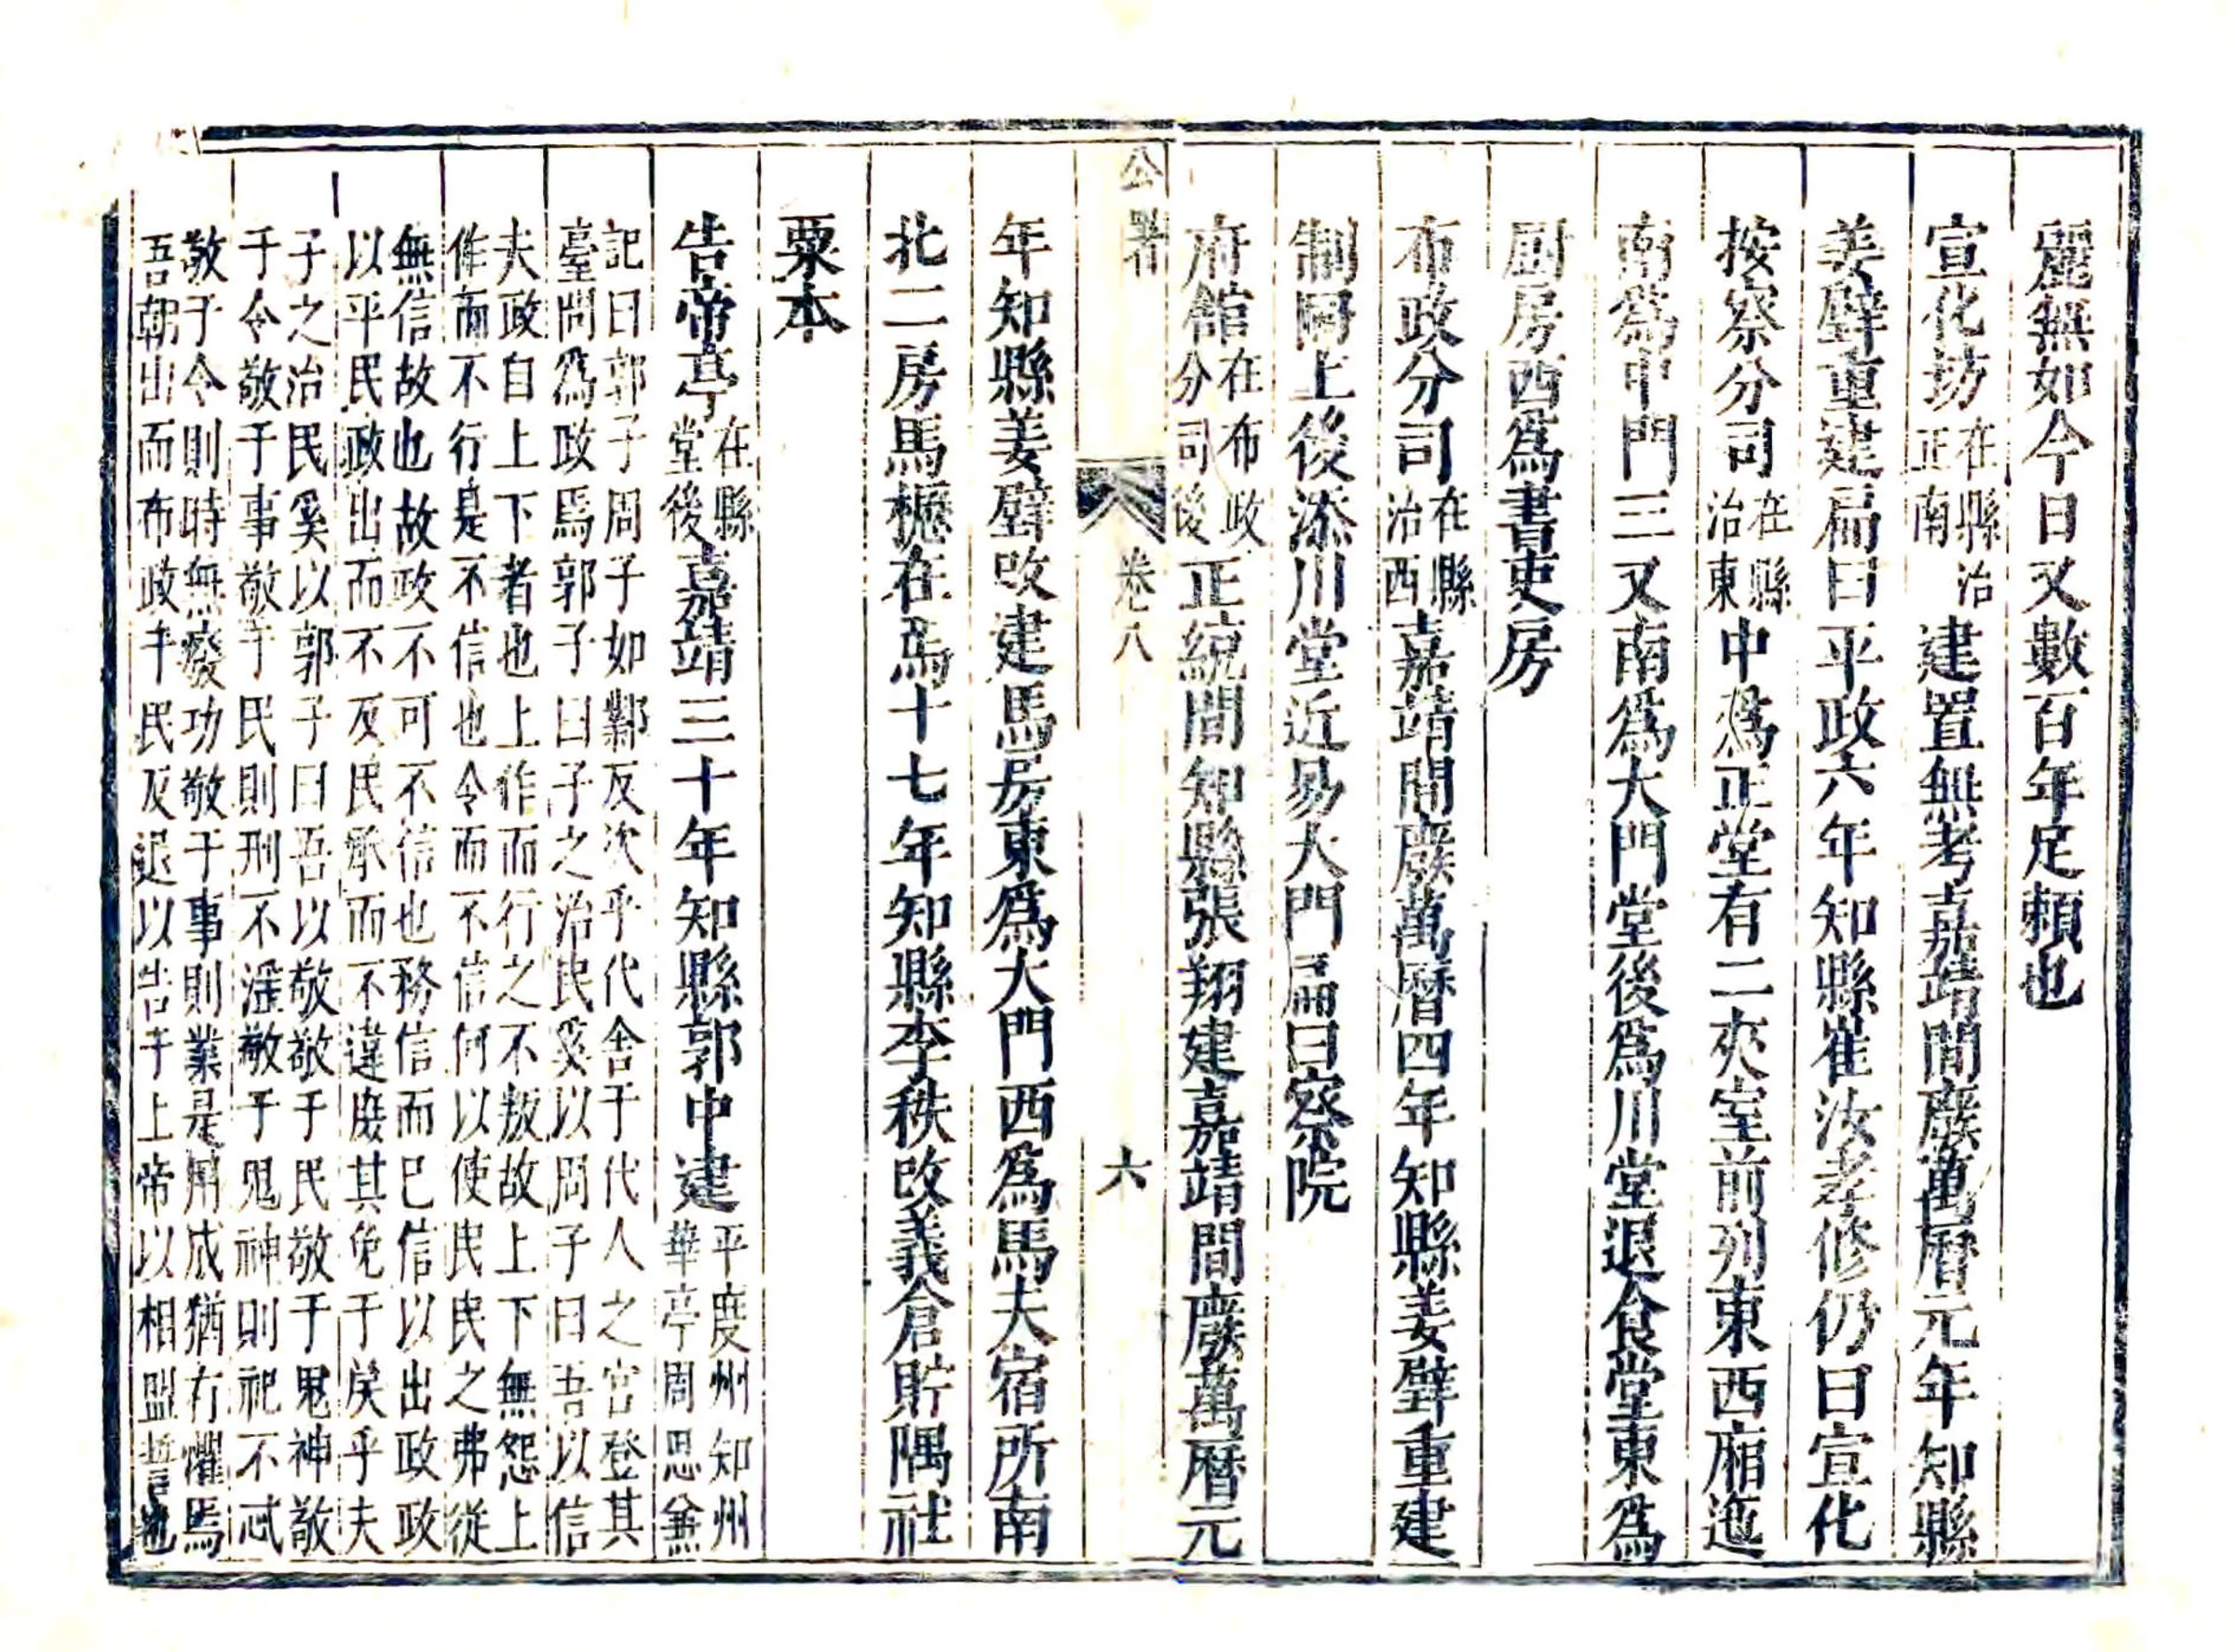 麗無如今日又數百年足賴也
宣化坊在縣治正南建置無考嘉靖間廢萬曆元年知縣
姜璧重建扁曰平政六年知縣崔汝孝修仍曰宣化
按察分司在縣治東中爲正堂有二夾室前列東西廂迤
南爲中門三又南爲大門堂後爲川堂退食堂東爲
厨房西爲書吏房
布政分司在縣治西嘉靖間廢萬曆四年知縣姜璧重建
制同上後添川堂近易大門扁曰察院
府館在布政分司後正統間知縣張翔建嘉靖間廢萬曆元
公署
卷八
六
年知縣姜璧改建馬房東爲大門西爲馬夫宿所南
北二房馬櫪在焉十七年知縣李秩改義倉貯隅社
粟本
告帝亭在縣堂後嘉靖三十年知縣郭中建平度州知州華亭周思兼
記曰郭子周子如鄴反次乎代舍于代人之宮登其
臺問爲政焉郭子曰子之治民奚以周子曰吾以信
夫政自上下者也上作而行之不叛故上下無怨上
作而不行是不信也令而不信何以使民民之弗從
無信故也故政不可不信也務信而巳信以出政政
以平民政出而不反民承而不違庶其免于戾乎夫
子之治民奚以郭子曰吾以敬敬于民敬于鬼神敬
于令敬于事敬于民則刑不滛敬于鬼神則祀不忒
敬于令則時無癈功敬于事則業是用成猶有懼焉
吾朝出而布政于民反退以告于上帝以相盟誓也